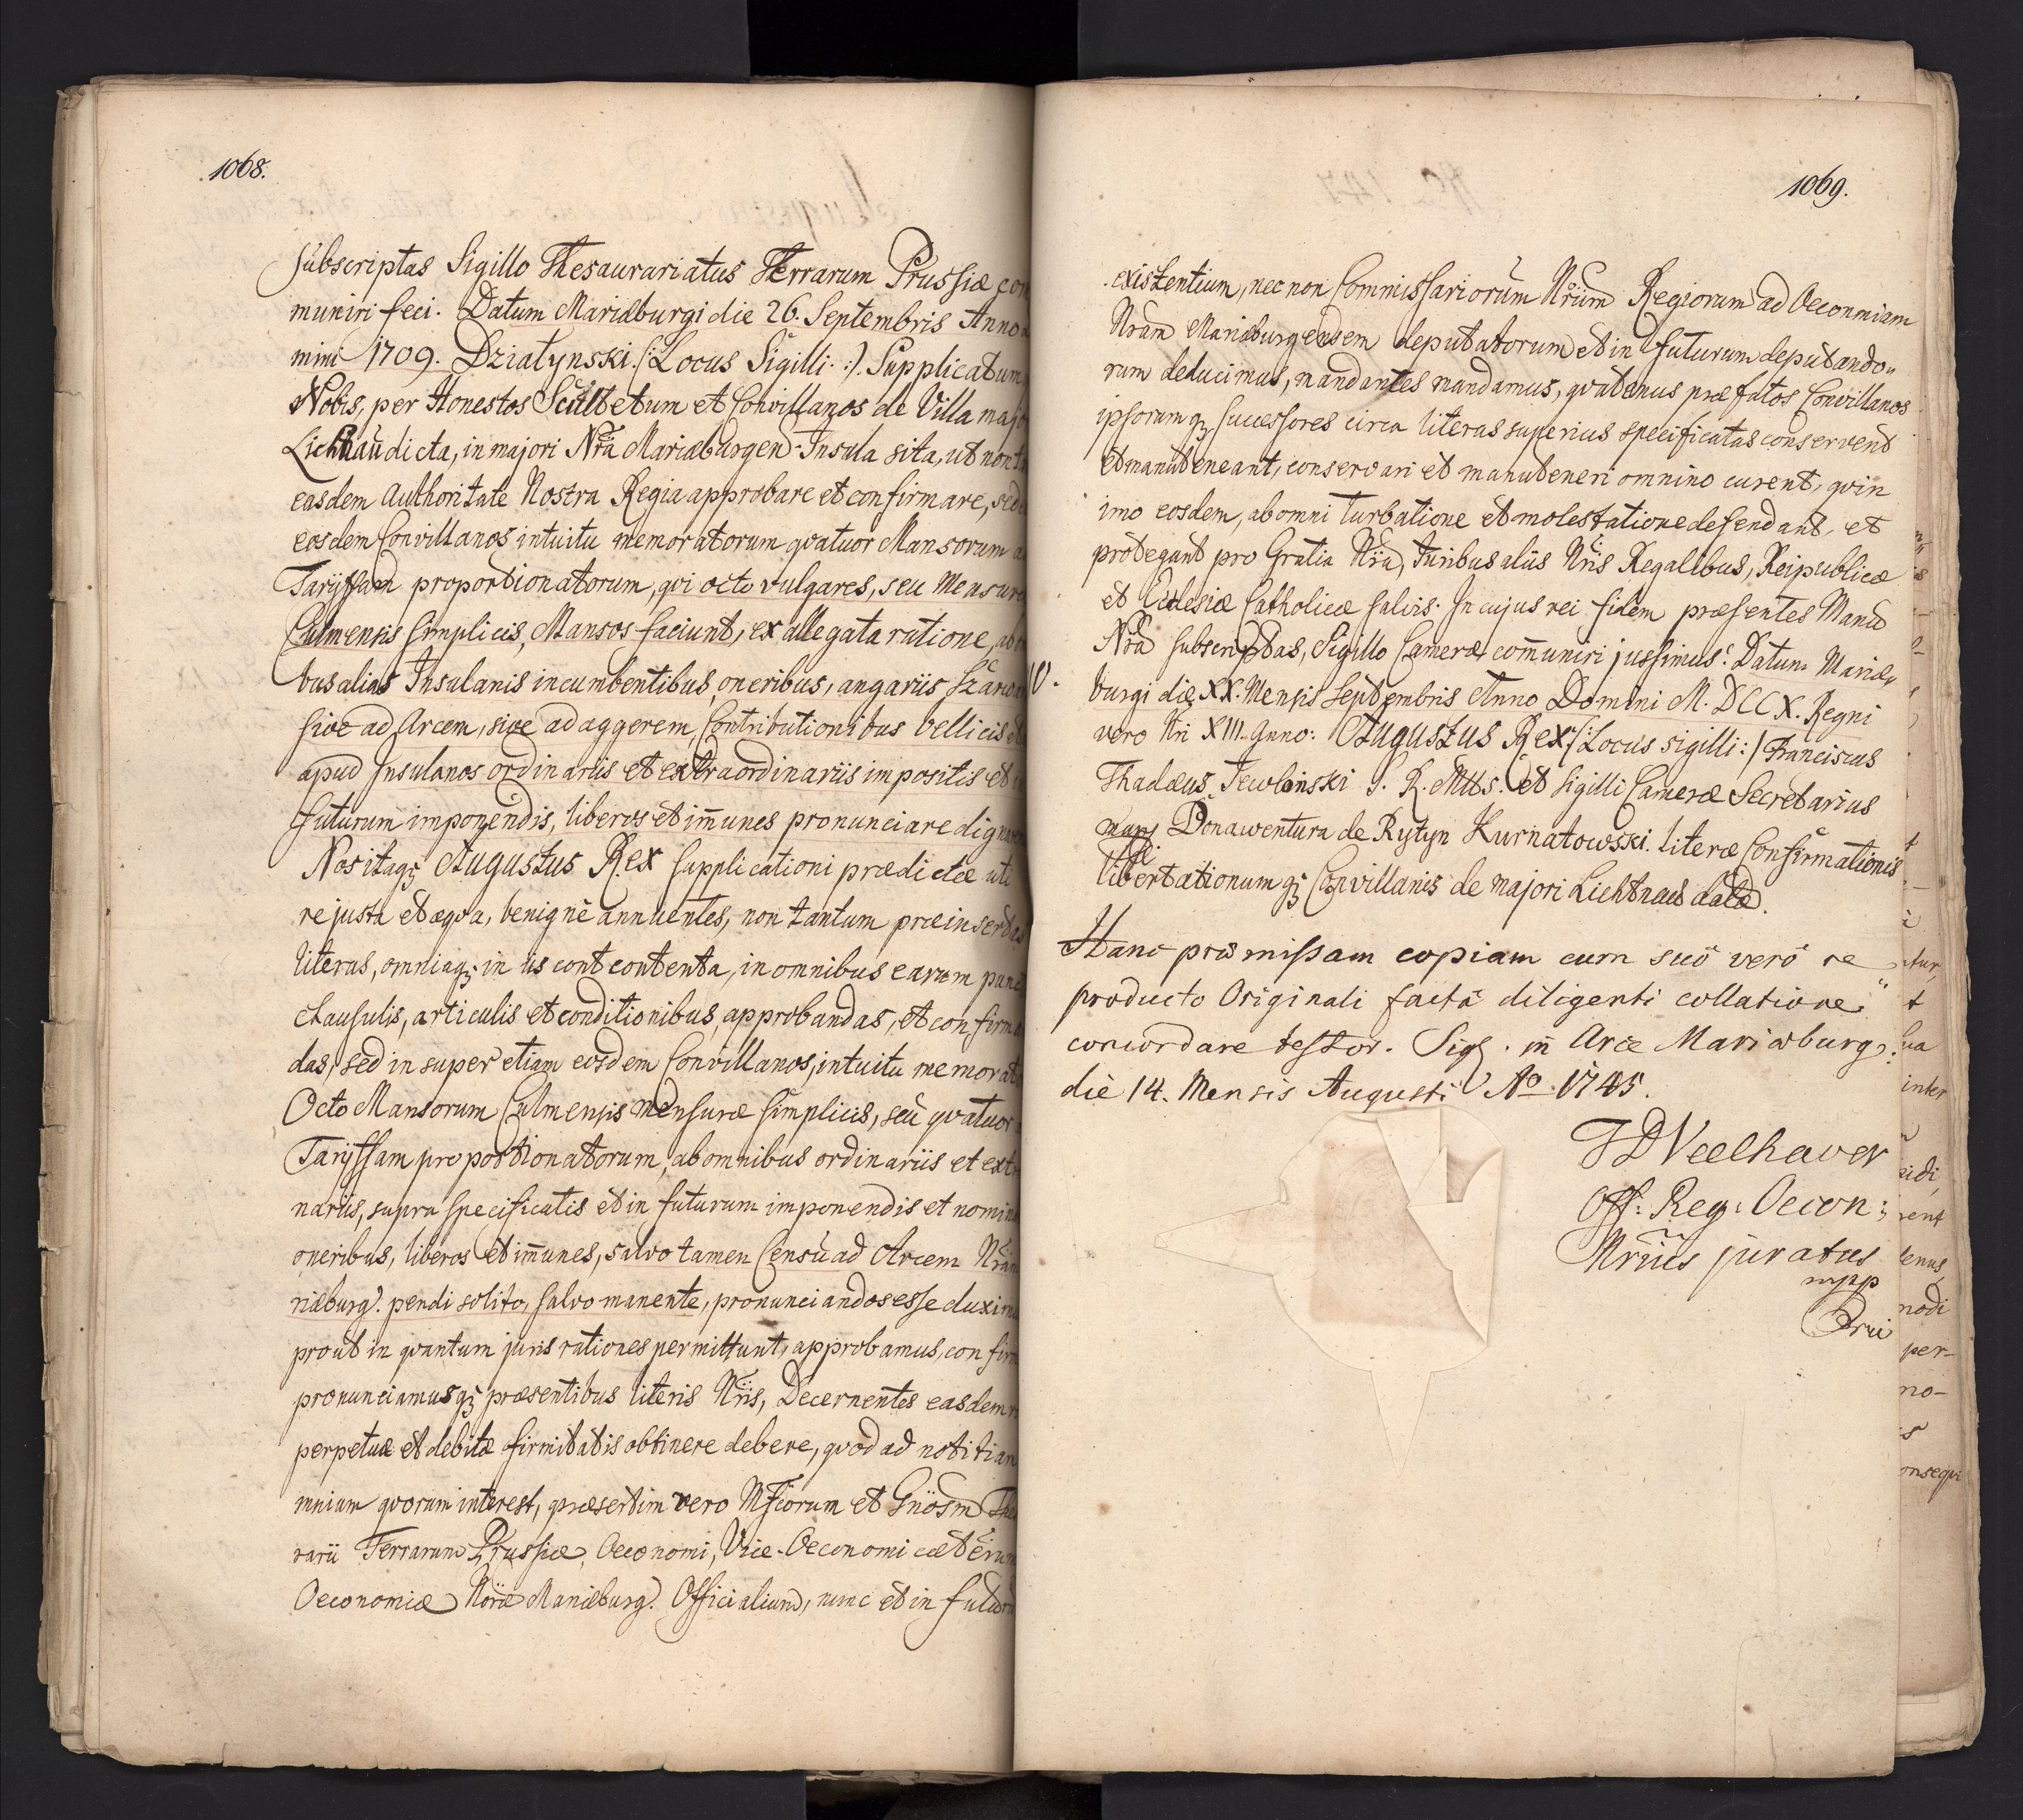 1068.
Subscriptas Sigillo Thesaurariatus Terrarum Prussiæ com
muniri feci. Datum Mariæburgi die 26. Septembris Anno
mini 1709. Dziatynski. (: Locus Sigilli :). Supplicatum
Nobis, per Honestos Scultetum et Convillanos de Villa majo
Lichnau dicta, in majori Nra Mariæburgen: Insula sita, ut non
easdem Authoritate Nostra Regia approbare et confirmare, sed
eosdem Convillanos intuitu memoratorum qvatuor Mansorum
Taryffam proportionatorum, qvi octo vulgares, seu Mensuræ
Culmensis simplicis, Mansos faciunt, ex allegata ratione, ab
bus alias Insulanis incumbentibus oneribus, angariis Szarwar
sive ad Arcem, sive ad aggerem, Contributionibus bellicis
apud Insulanos ordinariis et extraordinariis impositis et
futurum imponendis, liberos et im̄unes pronunciare digna
Nos itaqꝫ Augustus Rex supplicationi prædictæ uti
re justa et æqva, benignè annuentes, non tantum præinsertas
literas, omniaqꝫ in iis cont contenta, in omnibus earum punc
clausulis, articulis et conditionibus, approbandas, et confirm
das, sed in super etiam eosdem Convillanos, intuitu memorat
Octo Mansorum Culmensis Mensuræ simplicis, seu qvatuor
Taryffam proportionatorum, ab omnibus ordinariis et ext
nariis, supra specificatis et in futurum imponendis et nomin
oneribus, liberos et im̄unes, salvo tamen Censu ad Arcem Nram
riæburg. pendi solito, salvo manente, pronunciandos esse duxim
prout in qvantum juris rationes permittunt, approbamus, confir
pronunciamusqꝫ præsentibus literis Nris, Decernentes easdem
perpetuæ et debitæ firmitatis obtinere debere, qvod ad notitiam
mnium qvorum interest, præsertim vero Mficorum et Gnosm
rarii Terrarum Prussiæ, Oeconomi, Vice-Oeconomi cæterum
Oeconomiæ Nræ Mariæburg. Officialium, nunc et in futur
1069.
existentium, nec non Commissariorum Nrum Regiorum ad Oeconmiam
Nram Mariæburgensem deputatorum et in futurum deputando„
rum deducimus, mandantes mandamus, qvatenus præfatos Convillanos
ipsorumqꝫ successores circa literas superius specificatas conservent
et manuteneant, conservari et manuteneri omnino curent, qvin
imo eosdem, ab omni turbatione et molestatione defendant, et
protegant pro Gratia Nra, Juribus aliis Nris Regalibus, Reipublicæ
et Ecclesiæ Catholicæ salvis. In cujus rei fidem præsentes Manu
Nra subscriptas, Sigillo Cameræ com̄uniri jussimus. Datum Mariæ„
burgi die XX. Mensis Septembris Anno Domini M. DCCX. Regni
vero Nri XIII. Anno: Augustus Rex. /: Locus sigilli :/ Franciscus
Thadæus S. R. Mttis. et Sigilli Cameræ Secretarius
Bonawentura de Rytyn Kurnatowski. Literæ Confirmationis
Libertationumqꝫ Convillanis de majori Lichtnau datæ.
Hanc præmissam copiam cum suo vero re„
producto Originali factâ diligenti collatione
concordare testor. Sig. in Arce Mariæburg:
die 14. Mensis Augusti Ao 1745.
Off: Reg: Oecon:
juratus
mpp